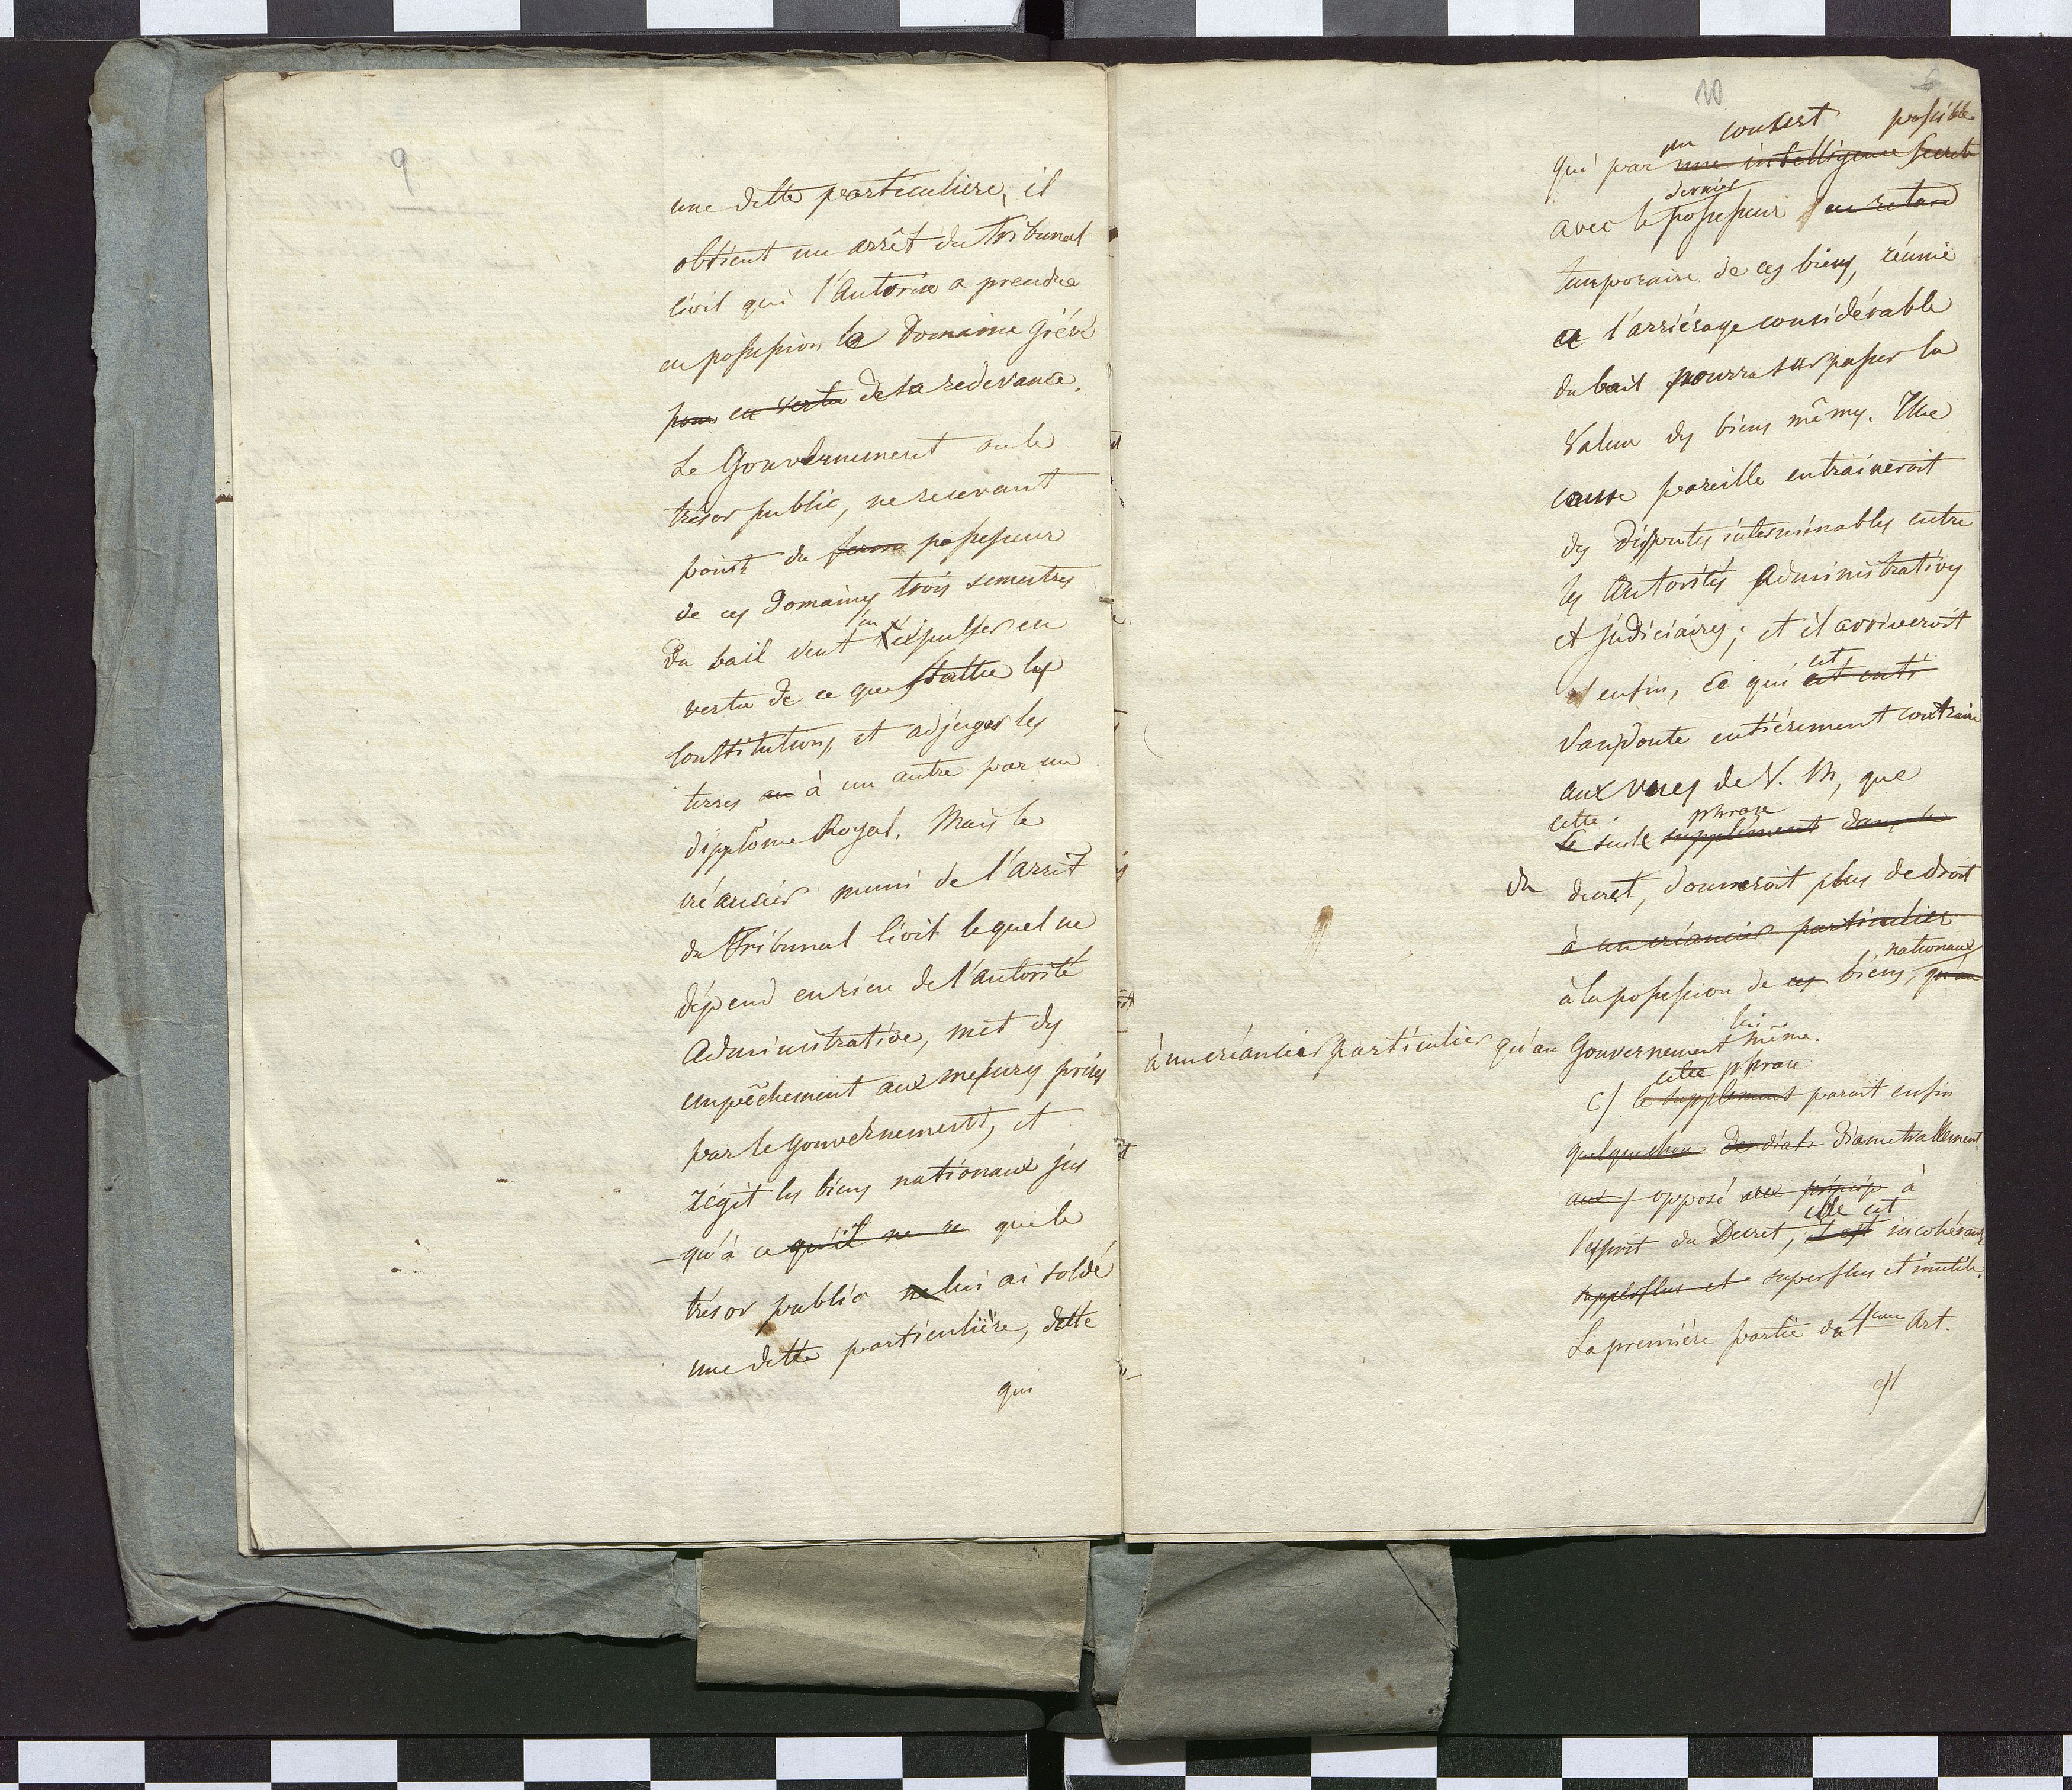 9
une dette particuliere, il
obtient un arrêt du Tribunal
Civil qui l'Autorise a prendre
en possession le Domaine Grévé
pour en vertu de sa redevance.
Le Gouvernement ou le
trésor public, ne recevant
point du possesseur
de ces Domaines trois semestres
Du bail veut en expulser en
vertu de ce que statue les
Constitutions, et adjuger les
terres au à un autre par un
dipplôme Royal. Mais le
créancier muni de l'arrêt
du Tribunal Civil lequel ne
dépend en rien de l'autorité
Administrative, met des
empêchement aux mesures prises
par le Gouvernement, et
régit les biens nationaux jus
qu'à ce qu'il ne se que le
trésor public ne lui ai soldé
une dette particulière, dette
qui
10
6
un concert possible
qui par une intelligence secrete
dernier
avec le possesseur en retard
temporaire de ces biens, réunie
a l'arriérage considérable
du bail pourra surpasser la
Valeur des biens mêmes. Une
cause pareille entraineroit
des disputes interminables entre
les Autorités Administratives
et judiciaires; et il arriveroit
est
enfin, ce qui est enti
Sans doute entiérement contraire
aux vues de V. M, que
cette phrase
Le seule supplément dans le
du decret, donneroit plus de droit
à un créancier particulier
nationaux
à la possession de ces biens, qu'au
lui
à un créancier particulier qu'au Gouvernement même.
cette phrase
c/ le supplement parait enfin
quelque chose de diametrallement
aux opposé aux princip à
elle est
l'esprit du Decret, il est incohérant
supperflus et superflus et inutile.
La première partie du 4eme Art.